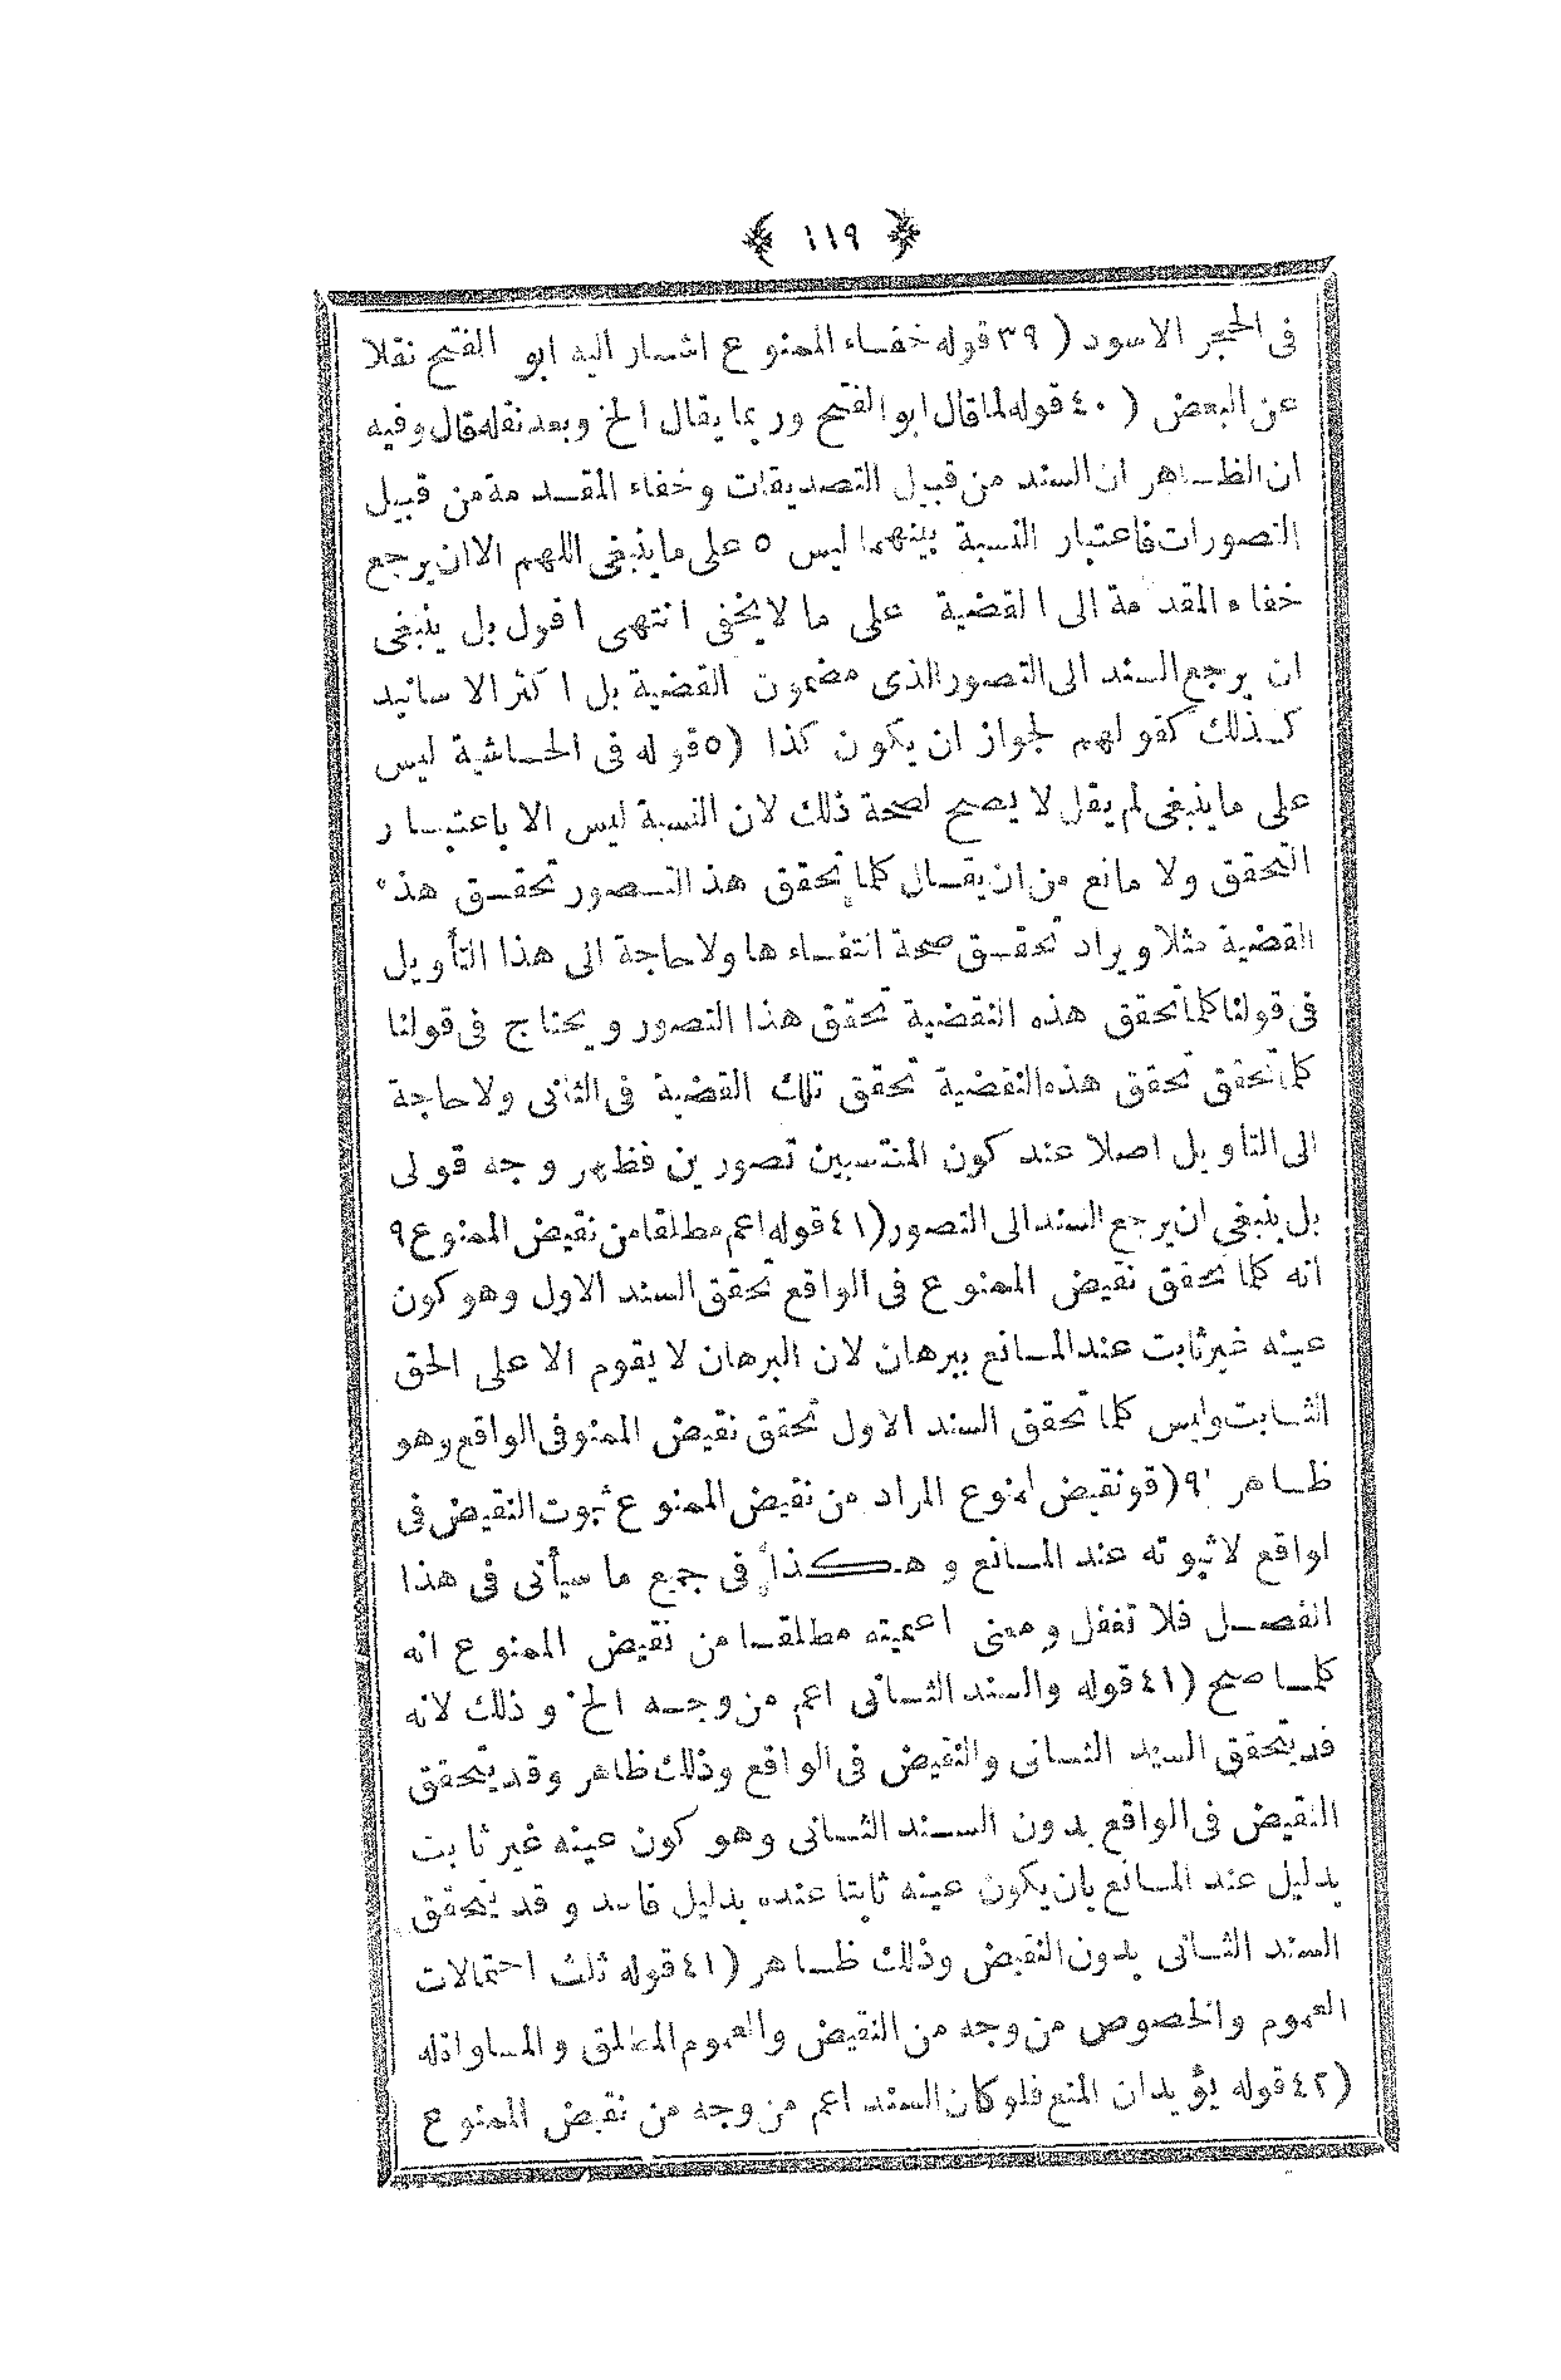 ﴿ ١١٩ ﴾
فى الحجر الاسود ( ٣٩ قوله خفاء الممنوع اشار اليه ابو الفتح نقلا
عن البعض ( ٤٠ قوله لما قال ابو الفتح وربما يقال الخ وبعد نقله قال وفيه
ان الظاهر ان السند من قبيل التصديقات وخفاء المقدمة من قبيل
التصورات فاعتبار النسبة بينهما ليس ٥ على ما ينبغى اللهم الا ان يرجع
خفاء المقدمة الى القضية على ما لا يخفى انتهى اقول بل ينبغى
ان يرجع السند الى التصور الذى مضمون القضية بل اكثر الاسانيد
كذلك كقولهم لجواز ان يكون كذا ( ٥ قوله فى الحاشية ليس
على ما ينبغى لم يقل لا يصح لصحة ذلك لان النسبة ليس الا باعتبار
التحقق ولا مانع من ان يقال كلما تحقق هذ التصور تحقق هذه
القضية مثلا ويراد تحقق صحة انتفاءها ولا حاجة الى هذا التأويل
فى قولنا كلما تحقق هذه القضية تحقق هذا التصور ويحتاج فى قولنا
كلما تحقق تحقق هذه القضية تحقق تلك القضية فى الثانى ولا حاجة
الى التاويل اصلا عند كون المنتسبين تصورين فظهر وجه قولى
بل ينبغى ان يرجع السند الى التصور ( ٤١ قوله اعم مطلقا من نقيض الممنوع ٩
انه كلما تحقق نقيض الممنوع فى الواقع تحقق السند الاول وهو كون
عينه غير ثابت عند المانع ببرهان لان البرهان لا يقوم الا على الحق
الثابت وليس كلما تحقق السند الاول تحقق نقيض الممنو فى الواقع وهو
ظاهر ٩ ( قو نقيض لمنوع المراد من نقيض الممنوع ثبوت النقيض فى
اواقع لا ثبوته عند المانع وهكذا فى جميع ما سيأتى فى هذا
الفصل فلا تغفل ومعنى اعميته مطلقا من نقيض الممنوع انه
كلما صح ( ٤١ قوله والسند الثانى اعم من وجه الخ وذلك لانه
قد يتحقق السند الثانى والنقيض فى الواقع وذلك ظاهر وقد يتحقق
النقيض فى الواقع بدون السند الثانى وهو كون عينه غير ثابت
بدليل عند المانع بان يكون عينه ثابتا عنده بدليل فاسد وقد يتحقق
السند الثانى بدون النقيض وذلك ظاهر ( ٤١ قوله ثلث احتمالات
العموم والخصوص من وجه من النقيض والعموم المطلق والمساواة له
( ٤٢ قوله يؤيد ان المنع فلو كان السند اعم من وجه من نقيض الممنوع